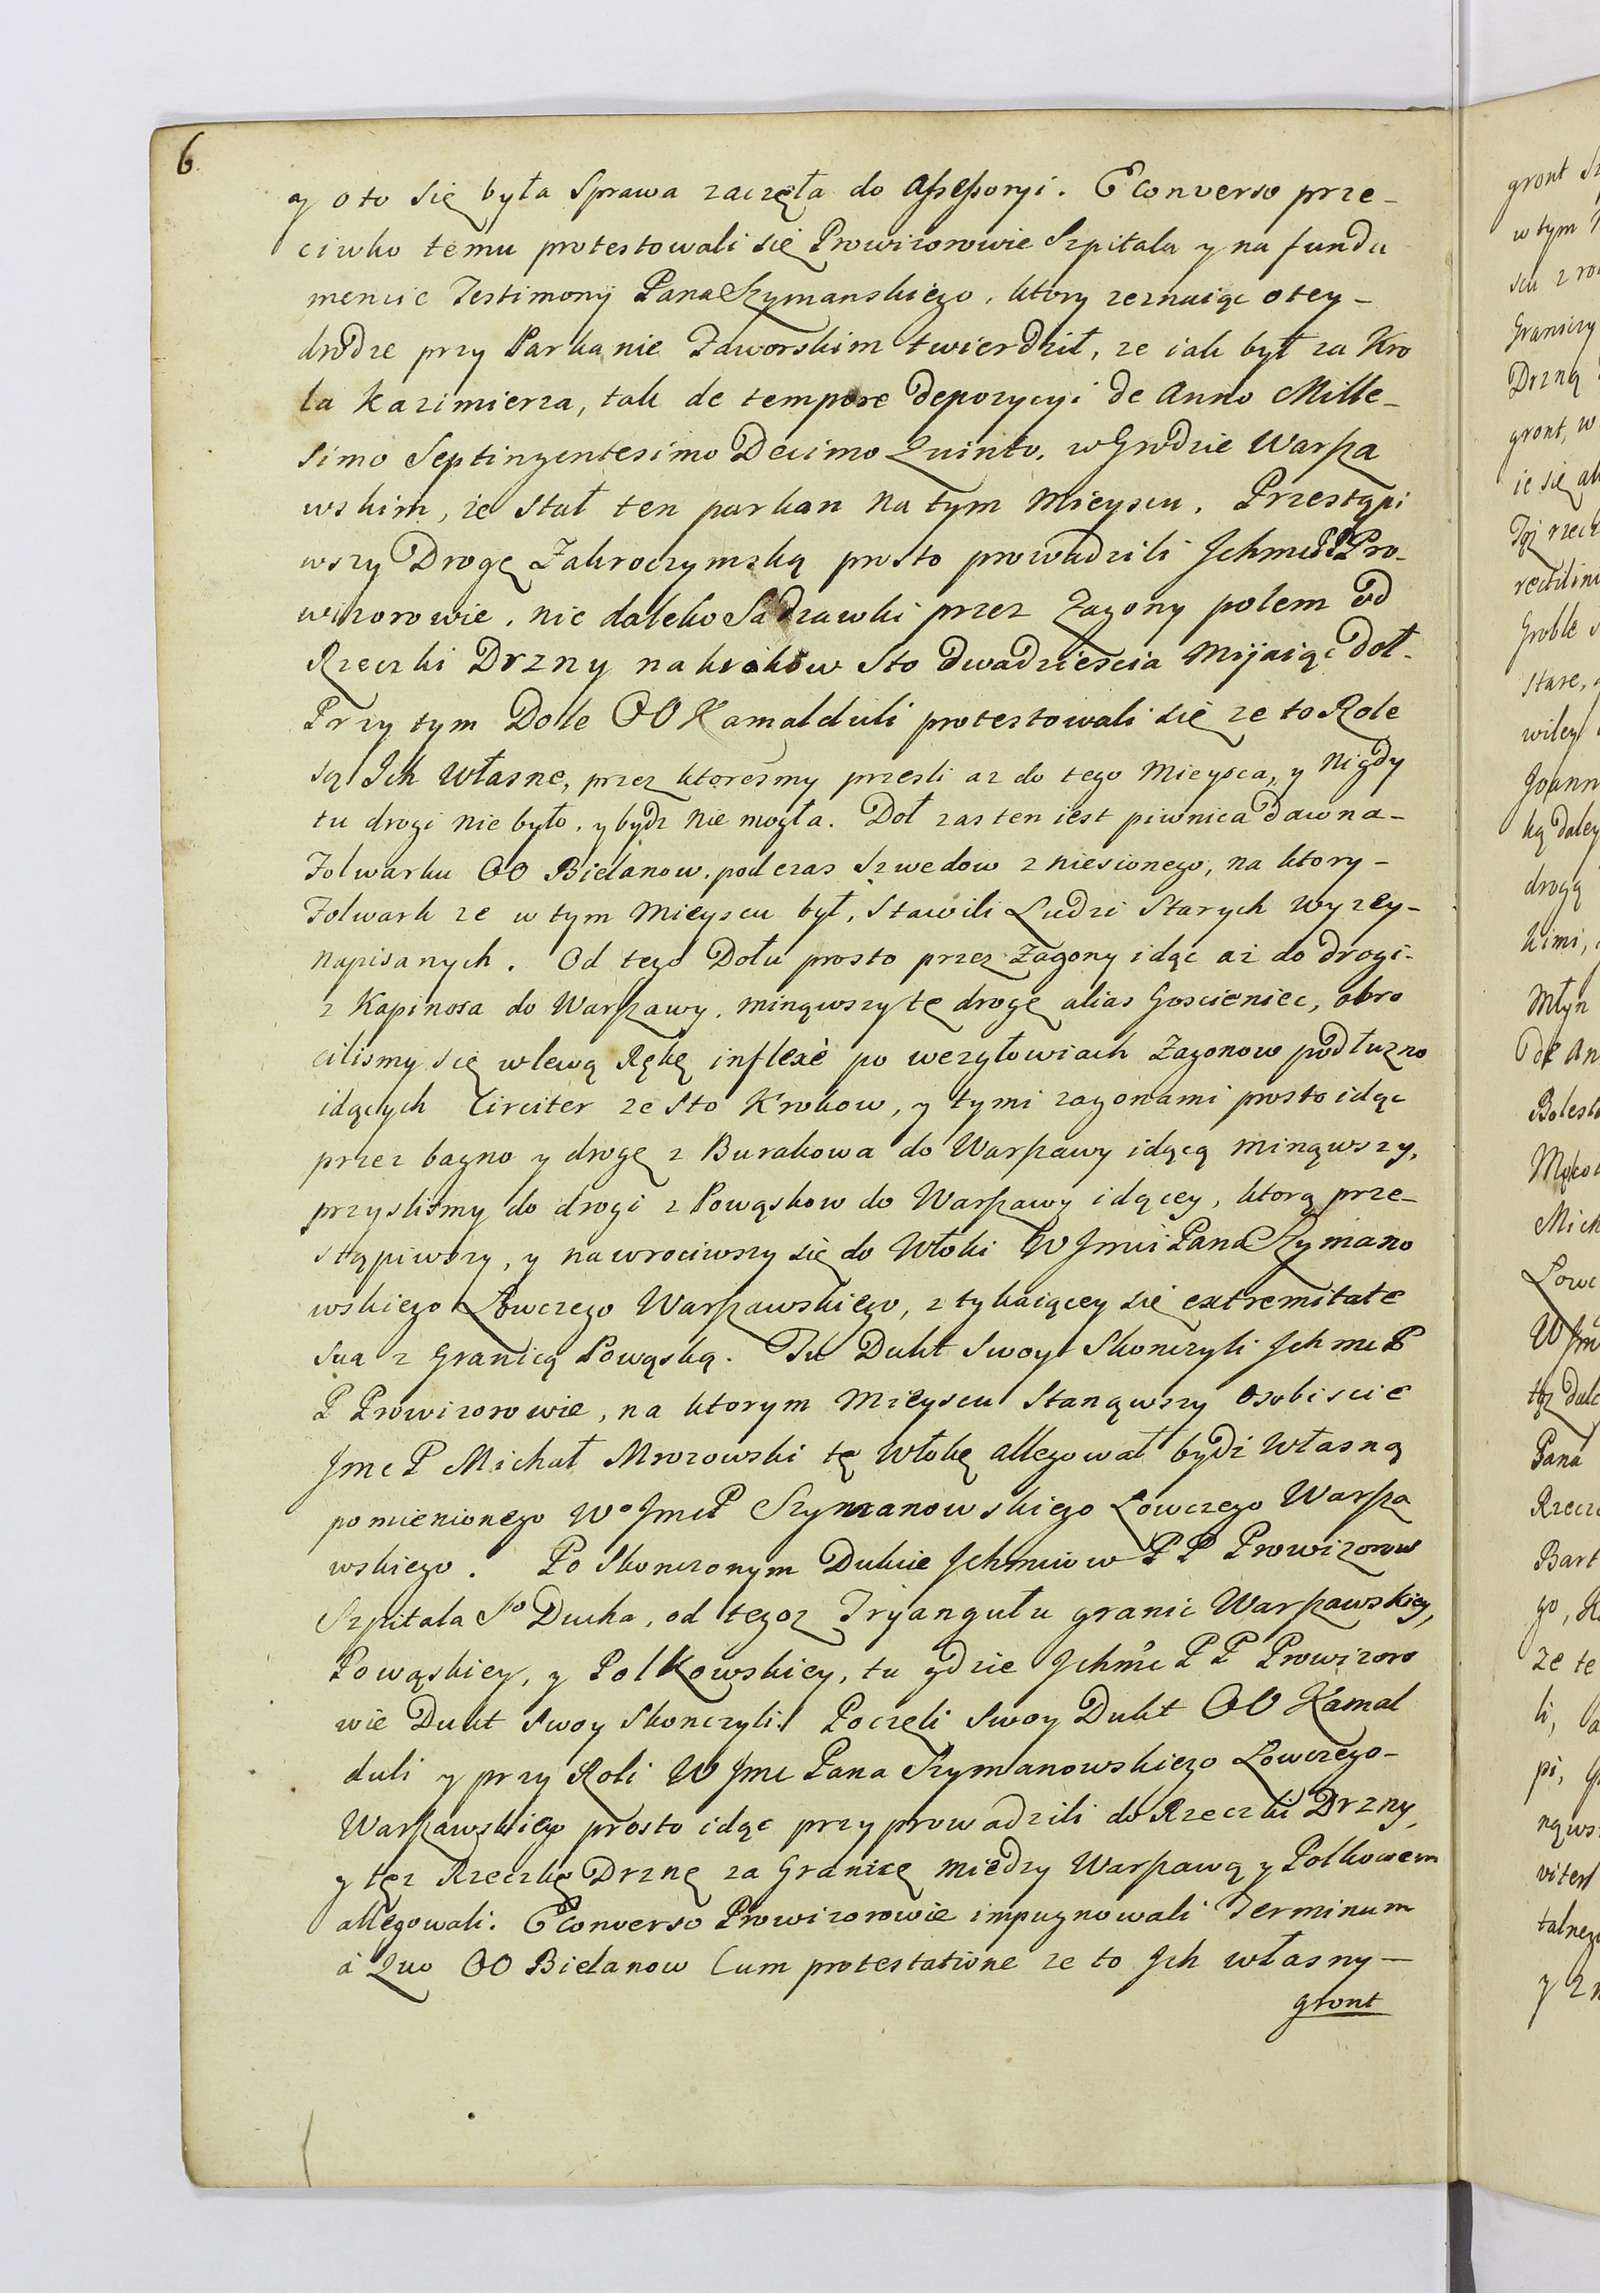 6.
y o to się była Sprawa zaczęła do Assessoryi. E converso prze-
ciwko temu protestowali się Prowizorowie Szpitala y na funda
mencie Testimonij Pana Szymanskiego, ktory zeznaiąc o tey-
drodze przy Parkanie Jaworskim twierdził, ze iak był za Kro
la Kazimierza, tak de tempore depozycyi de Anno Mille-
simo Septingentesimo Decimo Quinto, w Grodzie Warsza
wskim, ze stał ten parkan na tym Mieyscu. Przestąpi
wszy Drogę Zakroczymską prosto prowadzili Jchmć PP Pro-
wizorowie, nie daleko Sadzawki przez Zagony polem od
Rzeczki Drzny na krokow Sto dwadziescia Mijaiąc Doł.
Przy tym Dole OO Kamalduli protestowali się ze to Role
są Jch Własne, przez ktoresmy przesli az do tego Mieysca, y Nigdy
tu drogi nie było, y bydz nie mogła. Doł zas ten iest piwnica dawna-
Folwarku OO Bielanow, podczas Szwedow zniesionego, na ktory-
Folwark ze w tym Mieyscu był, Stawili Ludzi Starych wyzey-
napisanych. Od tego Dołu prosto przez Zagony idąc aż do drogi-
z Kapinosa do Warszawy, minąwszy tę drogę alias Goscieniec, obro
cilismy się w lewą Rękę inflexè po wezgłowiach Zagonow podłuzno
idących Circiter ze sto Krokow, y tymi zagonami prosto idąc
przez bagno y drogę z Burakowa do Warszawy idącą minąwszy,
przyslismy do drogi z Powąskow do Warszawy idącey, ktorą prze-
stąpiwszy, y nawrociwszy się do Włoki W Jmci Pana Szymano
wskiego Łowczego Warszawskiego, ztykaiącey się extremitate
sua z Granicą Powąską. Tu Dukt Swoy Skonczyli Jchmć P
P Prowizorowie, na ktorym Mieyscu Stanąwszy Osobiscie
Jmć P Michał Mrozowski tę Włokę allegował bydź Własną
pomienionego Wo Jmć P Szymanowskiego Łowczego Warsza
wskiego. Po Skonczonym Dukcie Jchmciow PP Prowizorow
Szpitala So Ducha, od tegoz Tryangułu granic Warszawskiey,
Powąskiey, y Polkowskiey, tu gdzie Jchmć PP Prowizoro
wie Dukt Swoy Skonczyli. Poczeli Swoy Dukt OO Kamal
duli y przy Roli W Jmć Pana Szymanowskiego Łowczego-
Warszawskiego prosto idąc przyprowadzili do Rzeczki Drzny,
y tęz Rzeczkę Drznę za Granicę między Warszawą y Polkowem
allegowali. E converso Prowizorowie impugnowali Terminum
à Quo OO Bielanow Cum protestatione ze to Jch własny-
gront